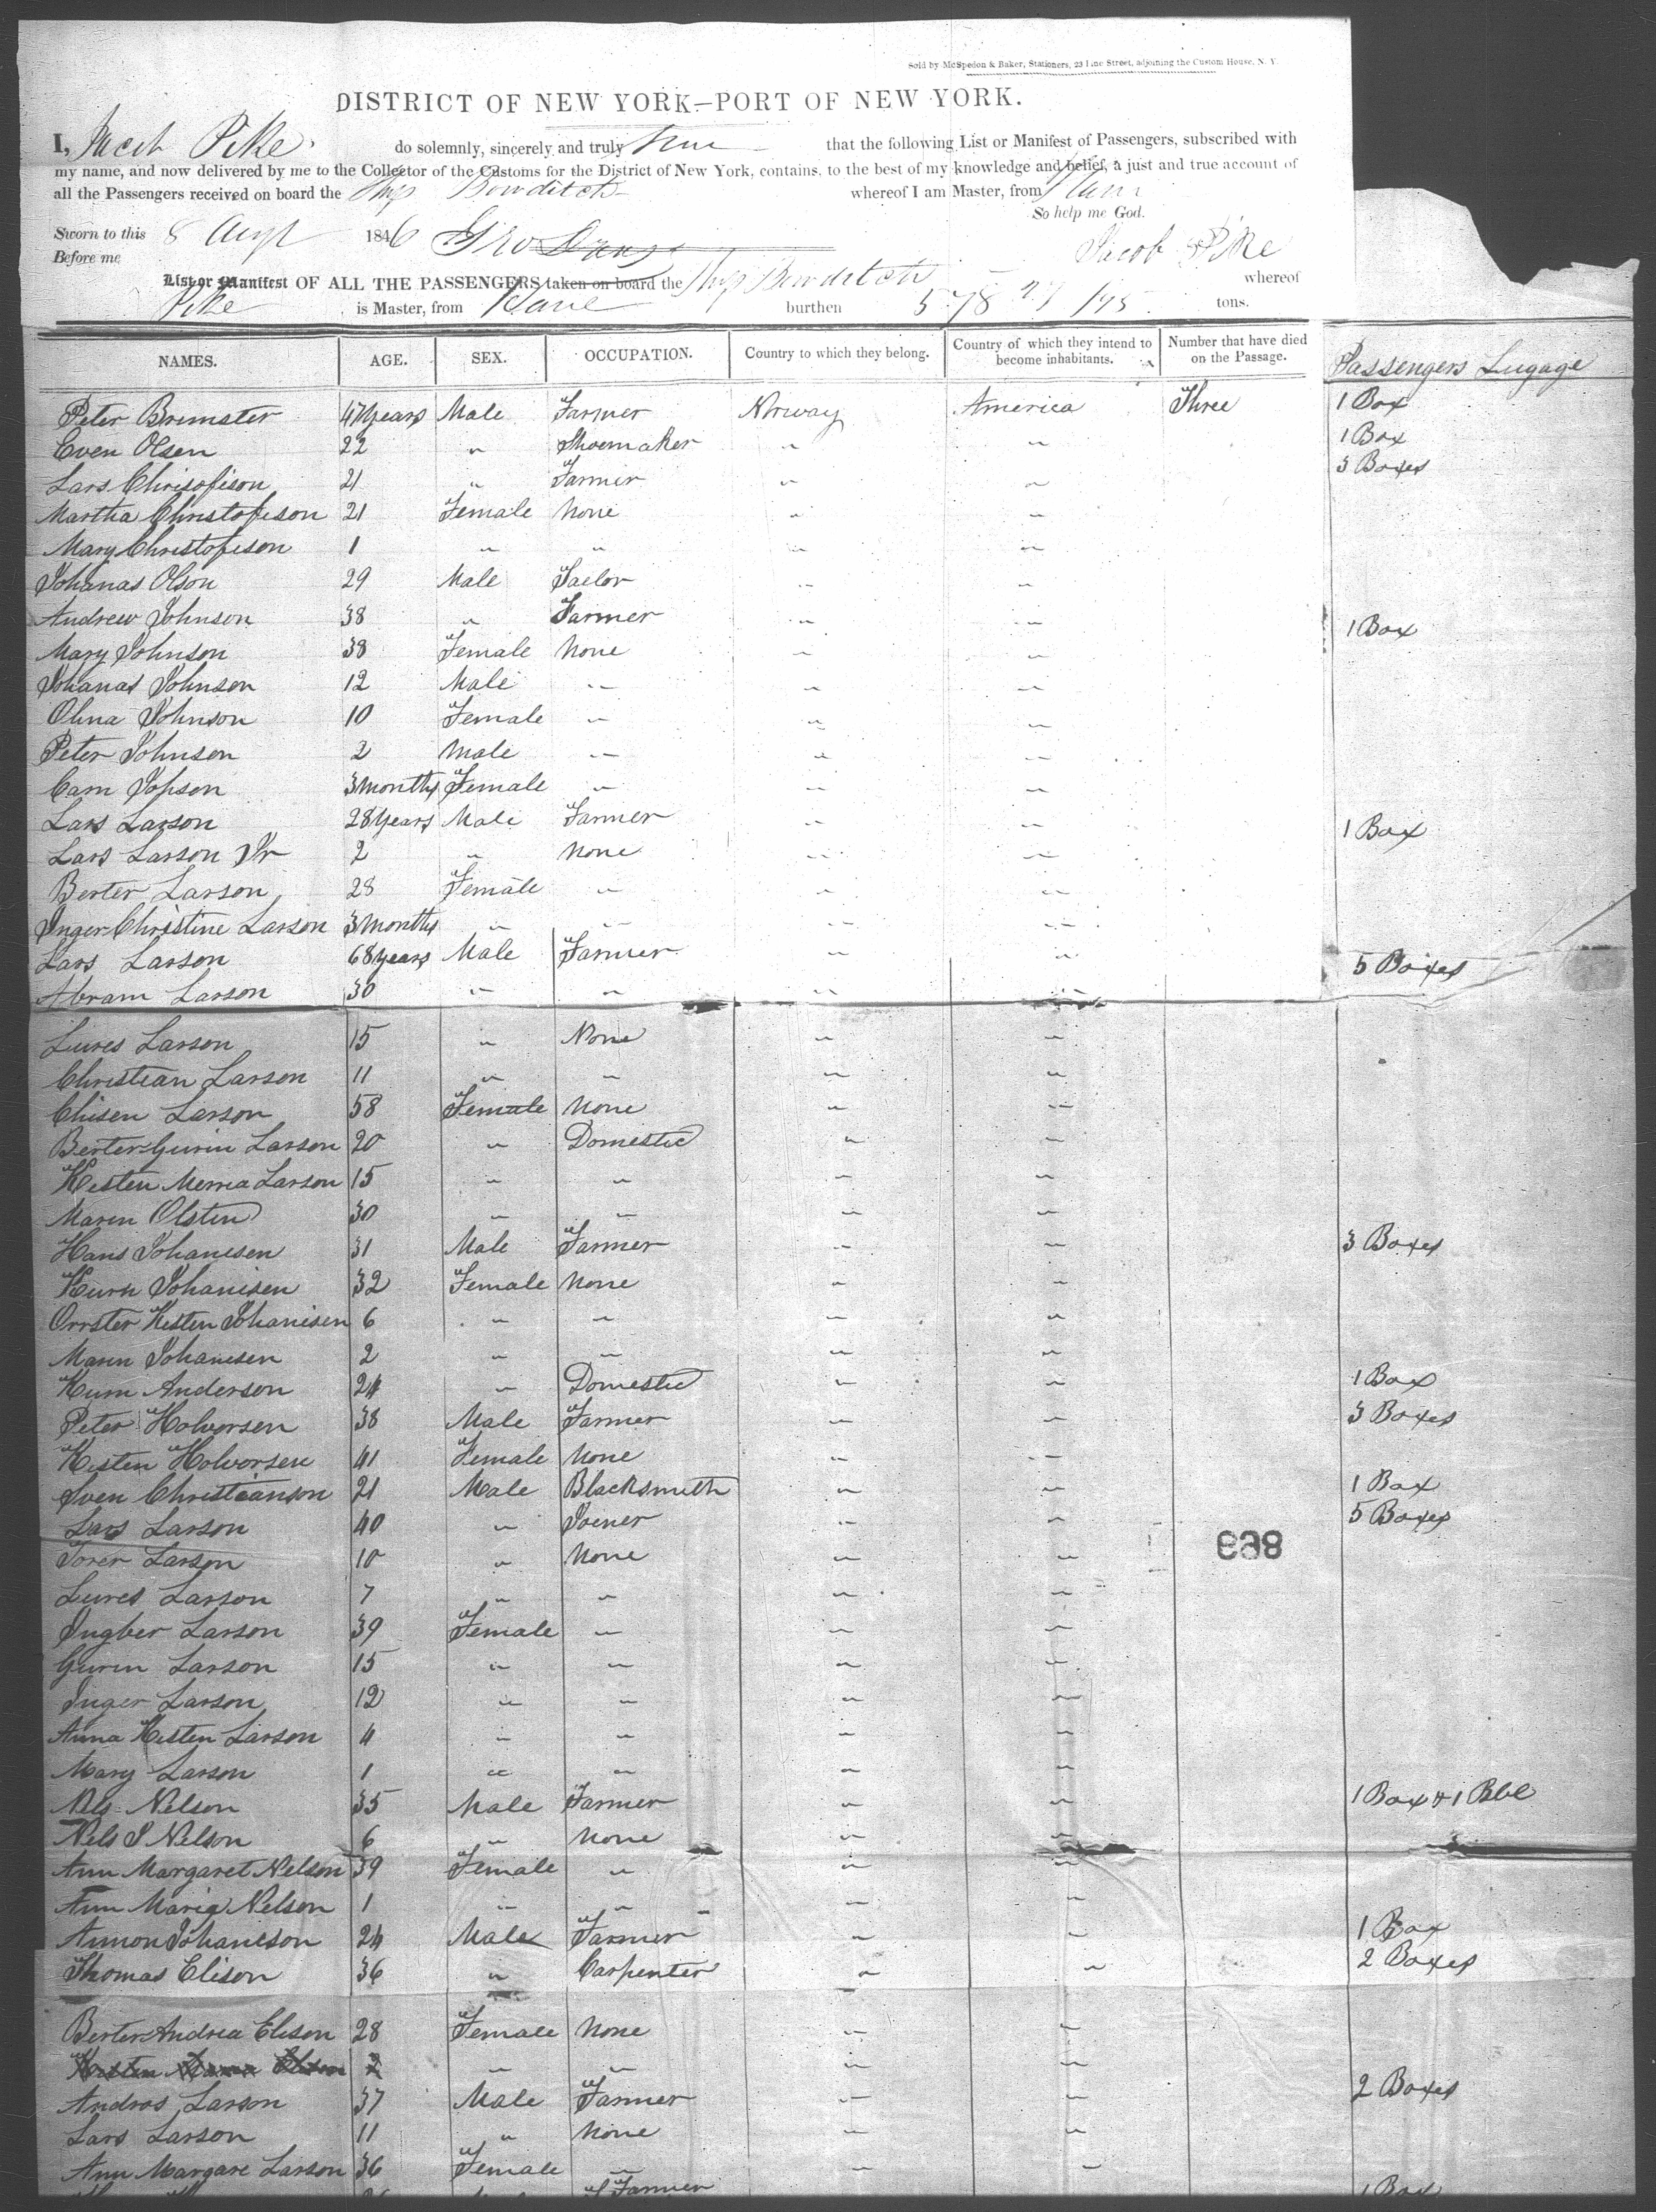 Sold by McSpedon & Baker, Stationers, 23 Pine Street, adjoining the Custom House, N. Y.
DISTRICT OF NEW YORK—PORT OF NEW YORK.
I, Jacob Pike do solemnly, sincerely and truly that the following List or Manifest of Passengers, subscribed with
my name, and now delivered by me to the Collector of the Customs for the District of New York, contains, to the best of my knowledge and belief, a just and true account of
all the Passengers received on board the Ship Bowditch whereof I am Master, from
So help me God.
Sworn to this 8 Augt 1846
Before me Jacob Pike
List or Manifest OF ALL THE PASSENGERS taken on board the Ship Bowditch whereof
Pike is Master, from Havre burthen 578 tons.
NAMES. AGE. SEX. OCCUPATION. Country to which they belong. Country of which they intend to become inhabitants. Number that have died on the Passage. Passengers Lugage
Peter Brumster 47 years Male Farmer Norway America Three 1 Box
Even Olsen 22 " Shoemaker " " 1 Box
Lars Chrisofison 21 " Farmer " " 3 Boxes
Martha Christofeson 21 Female None " "
Mary Christofeson 1 " " " "
Johanas Olson 29 Male Saelor " "
Andrew Johnson 38 " Farmer " " 1 Box
Mary Johnson 38 Female None " "
Johanas Johnson 12 Male " " "
Olina Johnson 10 Female " " "
Peter Johnson 2 Male " " "
Carn Jopson 3 months Female " " "
Lars Larson 28 years Male Farmer " " 1 Box
Lars Larson Jr 2 " None " "
Berter Larson 28 Female " " "
Inger Christine Larson 3 months " " " "
Lars Larson 68 years Male Farmer " " 5 Boxes
Abram Larson 30 " " " "
Lures Larson 15 " None " "
Christian Larson 11 " " " "
Chisen Larson 58 Female None " "
Berter Gurin Larson 20 " Domestic " "
Kesten Merrea Larson 15 " " " "
Maren Olsten 30 " " " "
Hans Johanesen 31 Male Farmer " " 3 Boxes
Kurn Johanisen 32 Female None " "
Orrster Kesten Johanisen 6 " " " "
Maren Johanesen 2 " " " "
Kurn Anderson 24 " Domestic " " 1 Box
Peter Holvorsen 38 Male Farmer " " 3 Boxes
Kesten Holvorsen 41 Female None " "
Sven Christeanson 21 Male Blacksmith " " 1 Box
Lars Larson 40 " Joener " " 5 Boxes
Torer Larson 10 " None " "
Lures Larson 7 " " " "
Ingber Larson 39 Female " " "
Gurin Larson 15 " " " "
Inger Larson 12 " " " "
Anna Kesten Larson 4 " " " "
Mary Larson 1 " " " "
Nels Nelson 35 Male Farmer " " 1 Box & 1 Bbl
Nels J Nelson 6 " None " "
Ann Margaret Nelson 39 Female " " "
Ann Maria Nelson 1 " " " "
Ammon Johaneson 24 Male Farmer " " 1 Box
Thomas Elison 36 " Carpenter " " 2 Boxes
Berter Andrea Elison 28 Female None " "
Kesten Elison 2 " " " "
Andras Larson 37 Male Farmer " " 2 Boxes
Lars Larson 11 " None " "
Ann Margare Larson 36 Female " " "
Farmer 1 Box